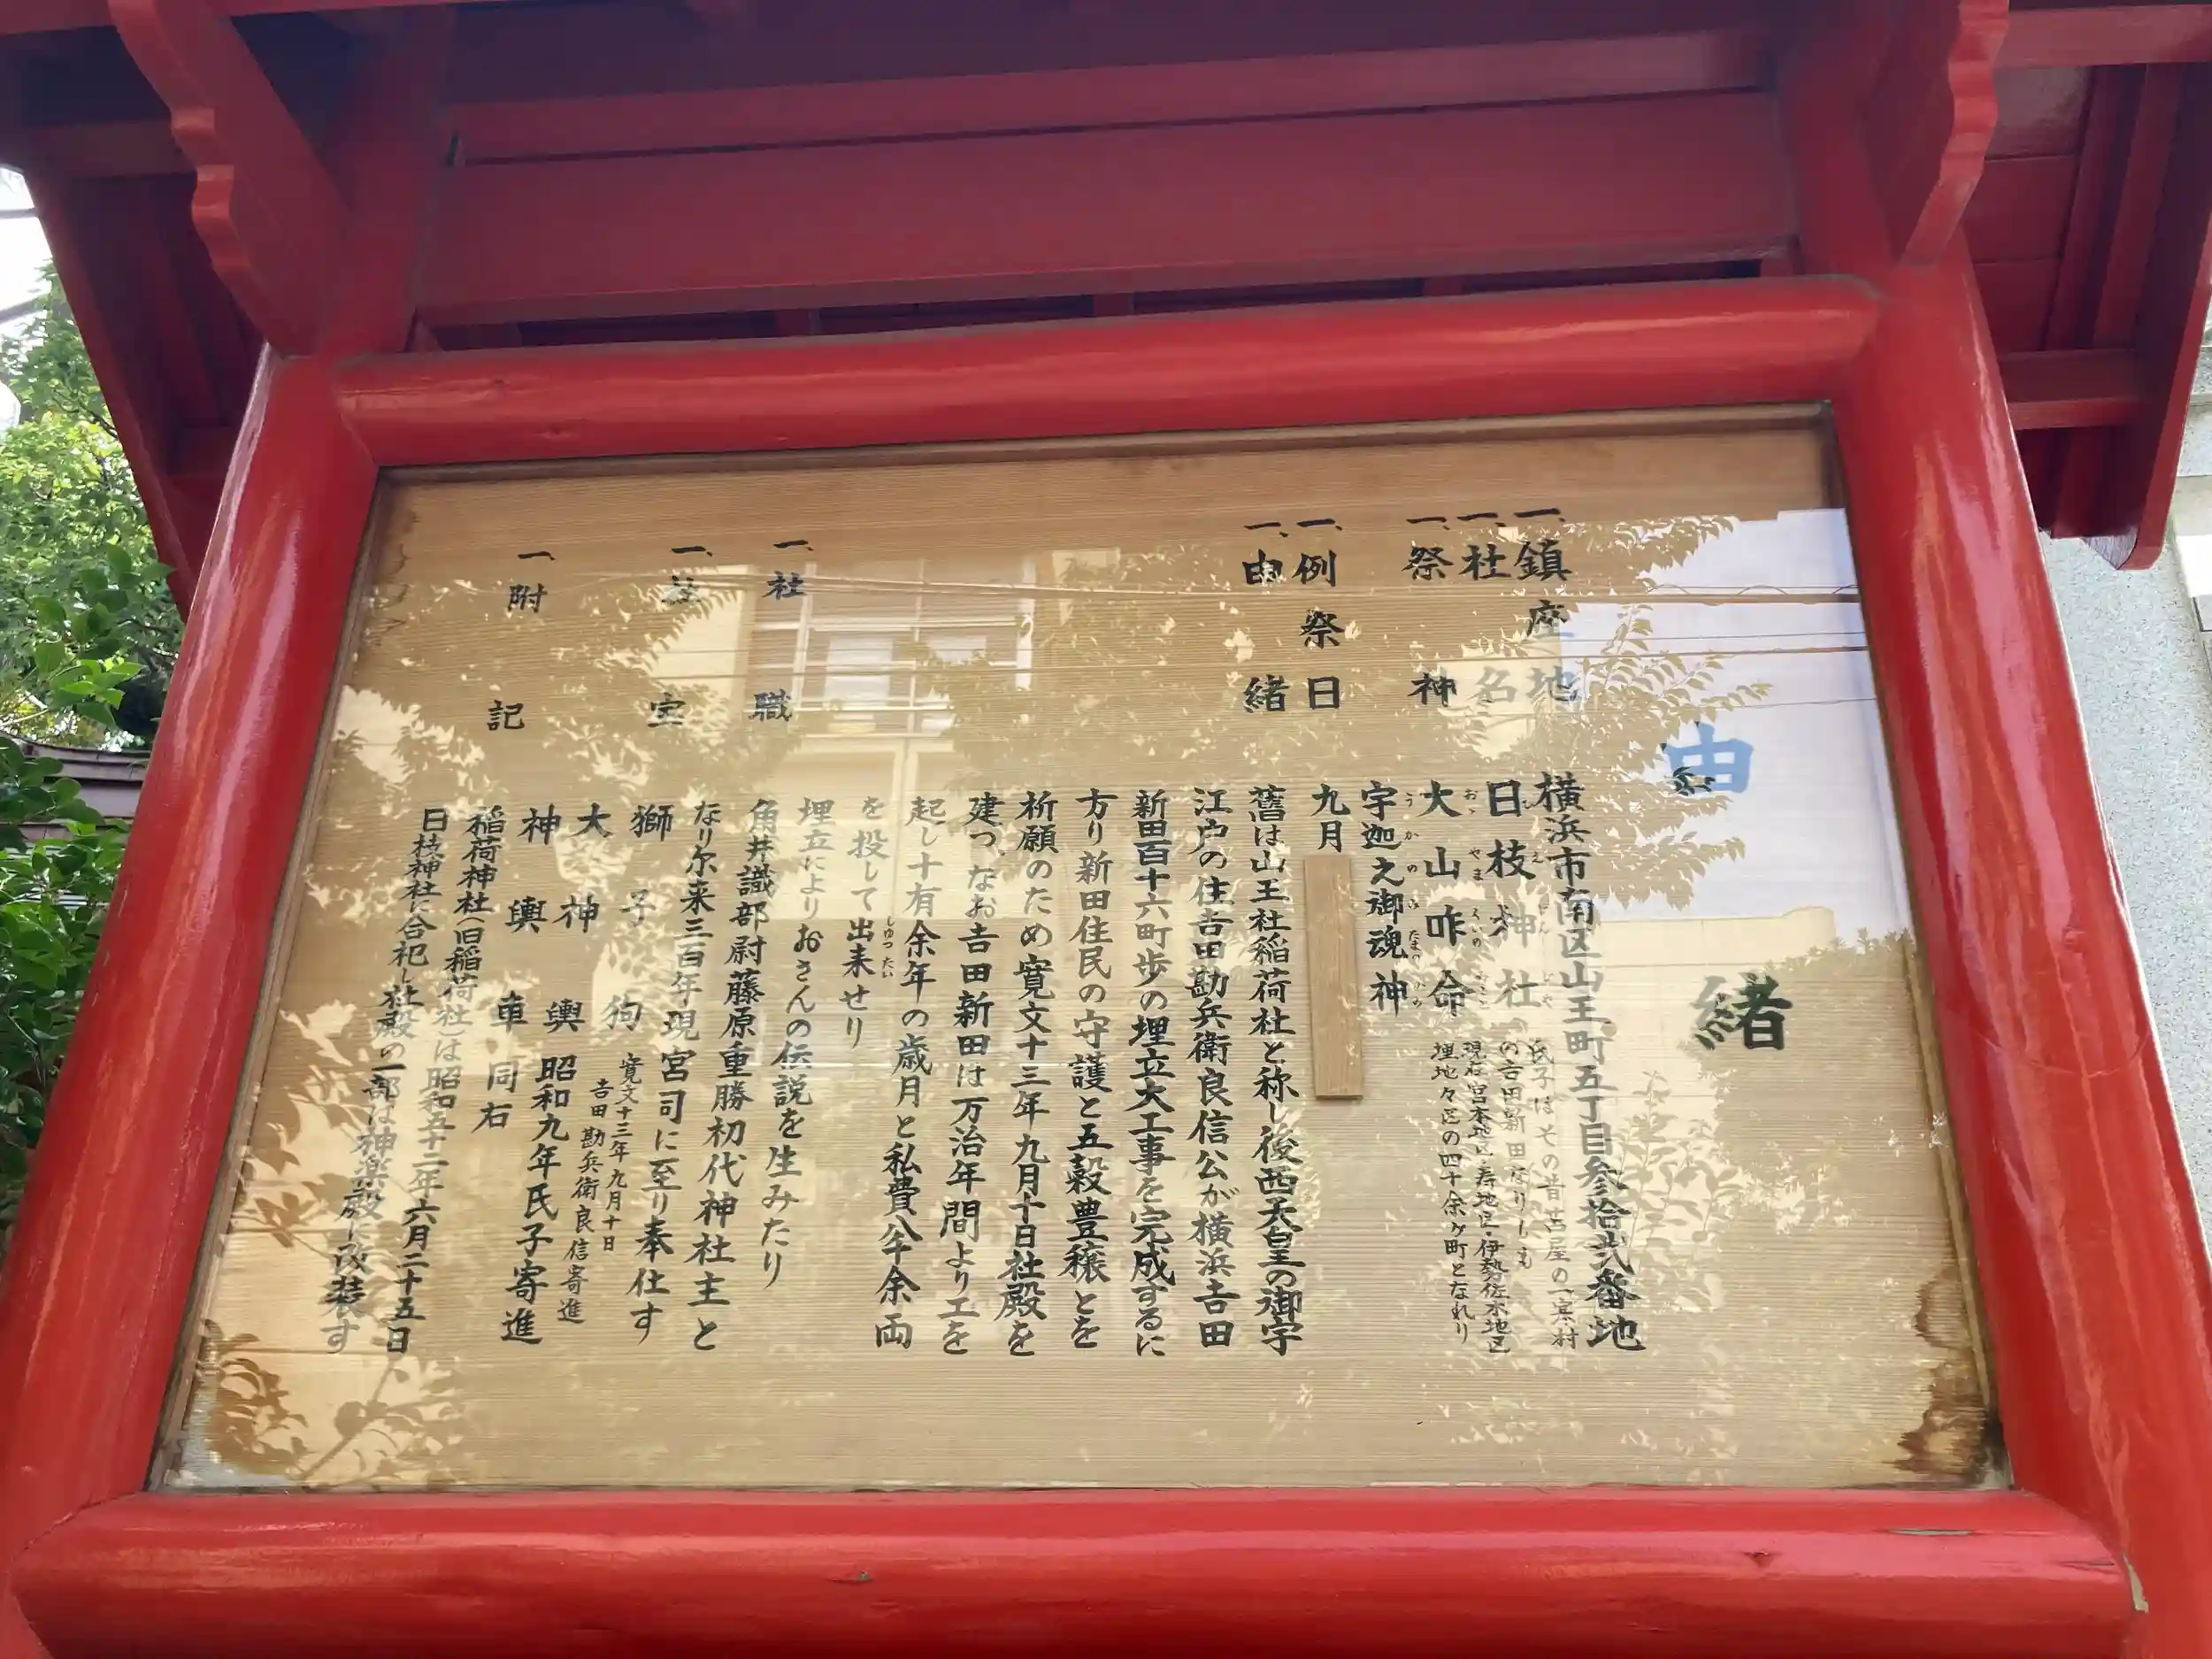 由緒
一、鎮座地 横浜市南区山王町五丁目参拾弐番地
一、社名 日枝神社
氏子はその昔苫屋の一寒村
の吉田新田なりしも
現在宮本地区・寿地区・伊勢佐木地区
埋地々区の四十余ヶ町となれり
一、祭神 大山咋命
宇迦之御魂神
一、例祭日 九月
一、由緒 舊は山王社稲荷社と称し後西天皇の御宇
江戸の住吉田勘兵衛良信公が横浜吉田
新田百十六町歩の埋立大工事を完成するに
方り新田住民の守護と五穀豊穣とを
祈願のため寛文十三年九月十日社殿を
建つ、なお吉田新田は万治年間より工を
起し十有余年の歳月と私費八千余両
を投して出来せり
埋立によりおさんの伝説を生みたり
一、社職 角井識部尉藤原重勝初代神社主と
なり尓来三百年現宮司に至り奉仕す
一、社宝 獅子狗 寛文十三年九月十日
吉田勘兵衛良信寄進
大神輿 昭和九年氏子寄進
神輿車 同右
一、附記 稲荷神社(旧稲荷社)は昭和五十二年六月二十五日
日枝神社に合祀し社殿の一部は神楽殿に改装す